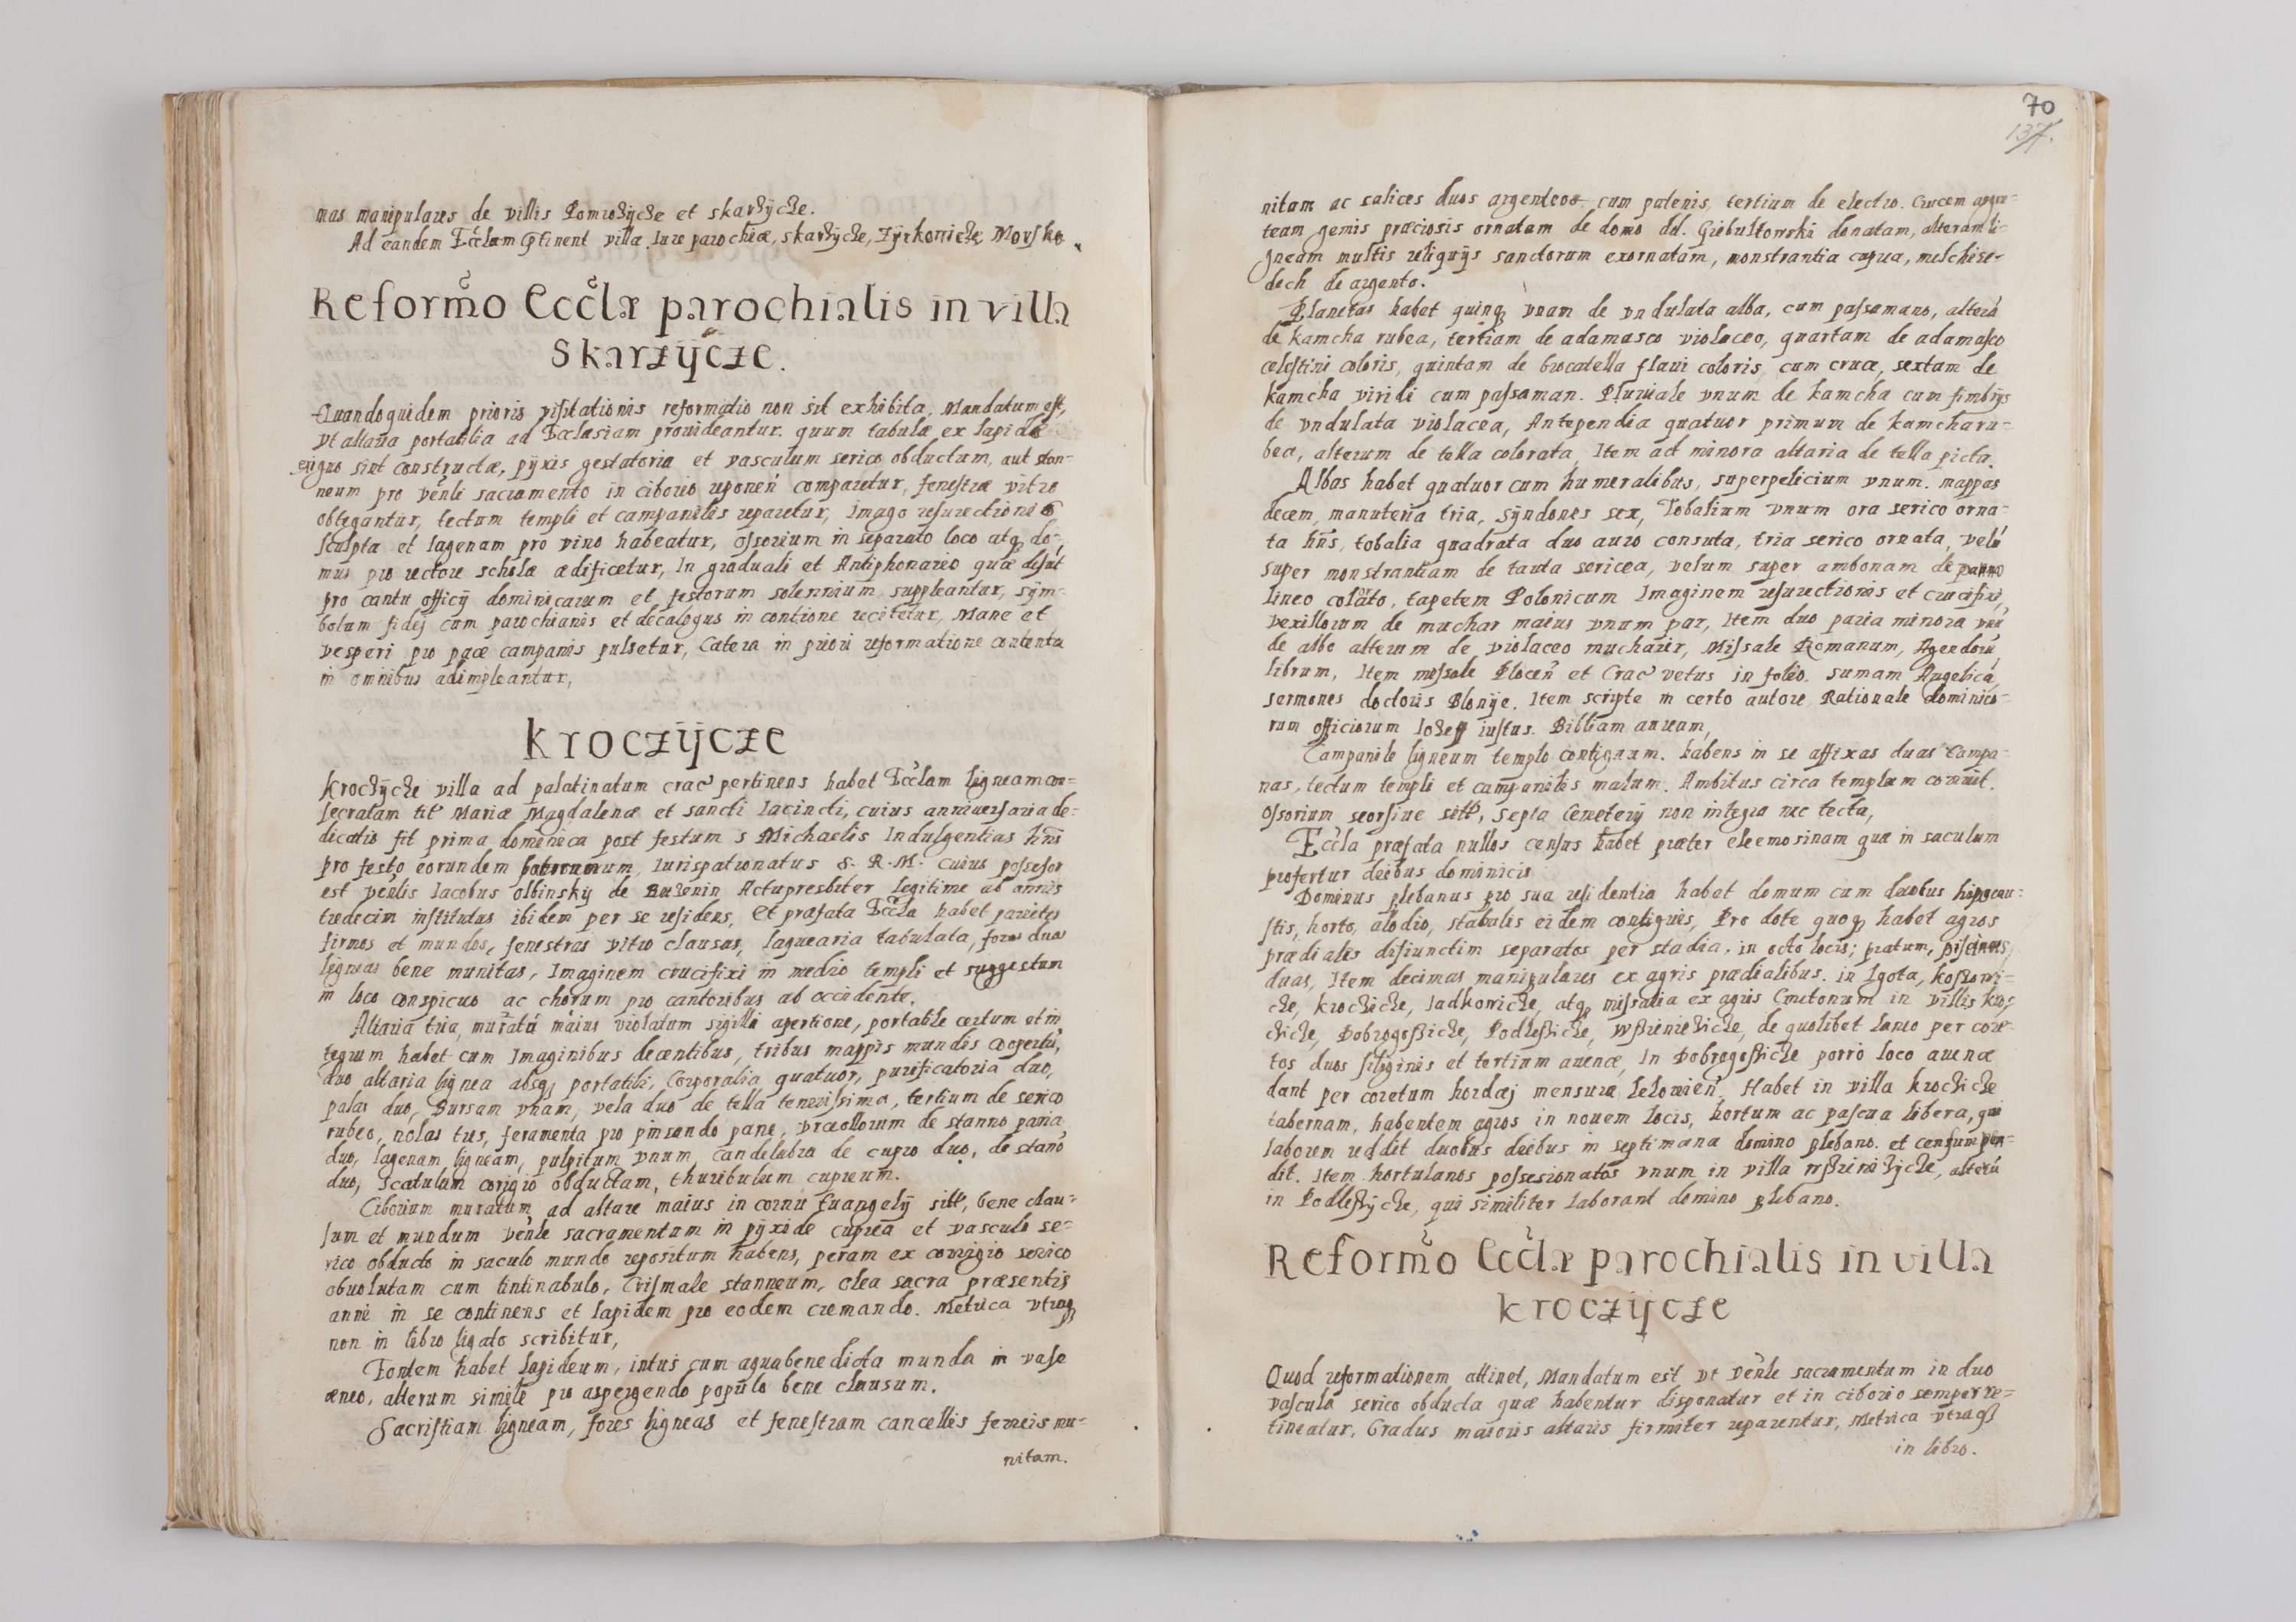 mas manipulares de villis Pomrożÿcże et skarżÿcże.
Ad eandem Eccłam ptinent villa Iure parochiæ, skarżÿcże, Zÿrkowicże Morsko
Reformo Ecclæ parochialis in villa
Skarzÿcze.
Quandoquidem prioris visitationis reformatio non sit exhibita, Mandatum est,
Vt altaria portatilia ad Ecclesiam prouideantur. quum tabulæ ex lapide
exiguo sint constructæ, pÿxis gestatoria et vasculum serico obductum, aut stan-
neum pro venli sacramento in ciborio reponen comparetur, fenestræ vitro
obtegantur, tectum templi et campanilis reparetur, Imago resurectionis
sculpta et lagenam pro vino habeatur, ossorium in separato loco atq do-
mus pro rectore scholæ ædificetur, In graduali et Antiphonario quæ desut
pro cantu officij dominicarum et festorum solennium suppleantur, sÿm-
bolum fidej cum parochianis et decalogus in contione recitetur, Mane et
vesperi pro pace campanis pulsetur, Cætera in priori reformatione contenta
in omnibus adimpleantur,
Kroczÿcze
Krocżÿcże villa ad palatinatum crac pertinens habet Ecclam ligneam con=
secratam tit Mariæ Magdalenæ et sancti Iacincti, cuius anniuersaria de-
dicatio fit prima dominica post festum s Michaelis Indulgentias hns
pro festo eorundem patronum, Iurispatronatus S. R. M. cuius possesor
est venlis Iacobus olbinskij de Buzenin Actupresbiter legitime ab annis
tredecim institutus ibidem per se residens, Et præfata Eccla habet parietes
firmos et mundos, fenestras vitro clausas, laquearia tabulata, fores duas
ligneas bene munitas, Imaginem crucifixi in medio templi et suggestum
in loco conspicuo ac chorum pro cantoribus ab occidente.
Altaria tria, muratu maius violatum sigilli apertione, portatile certum et in
tegrum habet cum Imaginibus decentibus, tribus mappis mundis coopertu,
duo altaria lignea absq portatili, Corporalia quatuor, purificatoria duo,
palas duo, Bursam vnam, vela duo de tella tenerissima, tertium de serico
rubeo, nolas tres, feramenta pro pinsando pane, vrceollorum de stanno paria
duo, lagenam ligneam, pulpitum vnum, candelabra de cupro duo, de stano
duo, Scatulum corigio obductam, thuribulum cupreum.
Ciborium muratum ad altare maius in cornu Euangelij sitt, bene clau-
sum et mundum venle sacramentum in pÿxide cuprea et vasculo se-
rico obducto in saculo mundo repositum habens, peram ex corrigio serico
obuolutam cum tintinabulo, Crismale stanneum, olea sacra præsentis
anni in se continens et lapidem pro eodem cremando. Metrica vtraq
non in libro ligato scribitur,
Fontem habet lapideum, intus cum aqua benedicta munda in vase
æneo, alterum simile pro aspergendo populo bene clausum.
Sacristiam ligneam, fores ligneas et fenestram cancellis ferreis mu-
nitam.
70
137.
nitam ac calices duos argenteos cum patenis, tertium de electro. Crucem argen-
team gemis præciosis ornatam de domo dd. Giebułtowski donatam, alteram li-
gneam multis reliquijs sanctorum exornatam, monstrantia cuprea, melchise-
dech de argento.
Planetas habet quinq vnam de vndulata alba, cum passamano, altera
de kamcha rubea, tertiam de adamasco violaceo, quartam de adamasco
celestini coloris, quintam de brocatella flaui coloris, cum cruce, sextam de
kamcha viridi cum passaman. Pluuiale vnum de kamcha cum fimbrijs
de vndulata violacea, Antependia quatuor primum de kamcha ru-
bea, alterum de tella colorata, Item ad minora altaria de tella picta.
Albas habet quatuor cum humeralibus, superpelicium vnum. mappas
decem, manuteria tria, sÿndones sex, Tobalium vnum ora serico orna-
ta hns, tobalia quadrata duo auro consuta, tria serico ornata, velu
super monstrantiam de tauta sericea, velum super ambonam de panno
lineo colato, tapetem Polonicum Imaginem resurectionis et crucifixi,
vexillorum de muchar maius vnum par, Item duo paria minora vnu
de albo alterum de violaceo mucharer, Missale Romanum, Agendoru
librum, Item missale Plocen et Crac vetus in folio. Sumam Angelica
sermones doctoris Blonÿe. Item scripte in certo autore Rationale dominico-
rum officiorum Iozeff iustus. Bibliam auream,
Campanile ligneum templo contiguum. habens in se affixas duas campa-
nas, tectum templi et campanilis malum. Ambitus circa templum corruit.
Ossorium seorsiue sitt, Septa Cemeterij non integra nec tecta,
Eccla præfata nullos census habet præter eleemosinam quæ in saculum
profertur diebus dominicis
Dominus plebanus pro sua residentia habet domum cum duobus hipocau-
stis, horto, alodio, stabulis eidem contiguis, Pro dote quoq habet agros
prædiales disiunctim separatos per stadia, in octo locis; pratum, piscinas,
duas, Item decimas manipulares ex agris prædialibus. in Lgota, kostowi-
cże, krocżicże, Iadkowicże, atq missalia ex agris Cmetonum in villis kro-
cżicże, Dobrogosżicże, Podlesżicże, wsżieniecżicże, de quolibet laneo per core-
tos duos siliginis et tertium auenæ, In Dobrogosżicże porro loco auenæ
dant per coretum hordæj mensuræ Lelowien, Habet in villa krocżicże
tabernam, habentem agros in nouem locis, hortum ac pascua libera, qui
laborem reddit duobus diebus in septimana domino plebano. et censum pen-
dit. Item hortulanos possesionatos vnum in villa wsżiniecżÿcże, alteru
in Podlesżÿcże, qui similiter laborant domino plebano.
Reformo Ecclæ parochialis in villa
kroczÿcze
Quod reformationem attinet, Mandatum est vt venle sacramentum in duo
vascula serico obducta quæ habentur disponatur et in ciborio semper re-
tineatur, Gradus maioris altaris firmiter reparentur, Metrica vtraq
in libro.